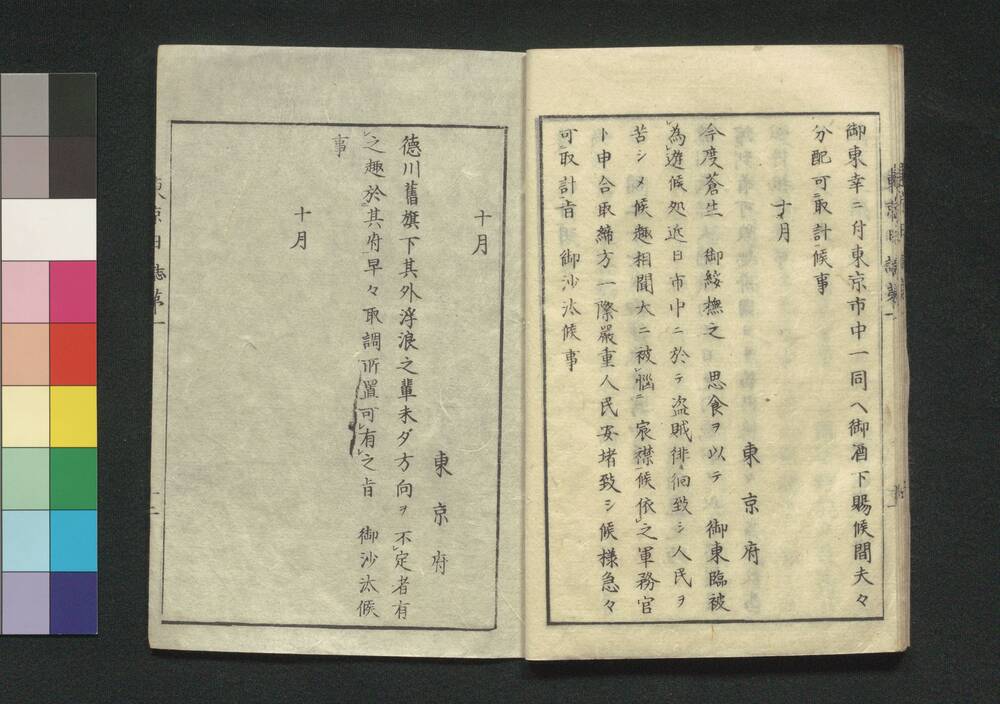 御東幸ニ付東京市中一同ヘ御酒下賜候間夫々
分配可取計候事
十月
東京府
今度蒼生 御綏撫之 思食ヲ以テ 御東臨被
為遊候処近日市中ニ於テ盗賊徘徊致シ人民ヲ
苦シメ候趣相聞大ニ被惱 宸襟候依之軍務官
ト申合取締方一際嚴重人民安堵致シ候様急々
可取計旨 御沙汰候事
十月
東京府
德川舊旗下其外浮浪之輩未ダ方向ヲ不定者有
之趣於其府早々取調所置可有之旨 御沙汰候
事
十月
東京日誌第一